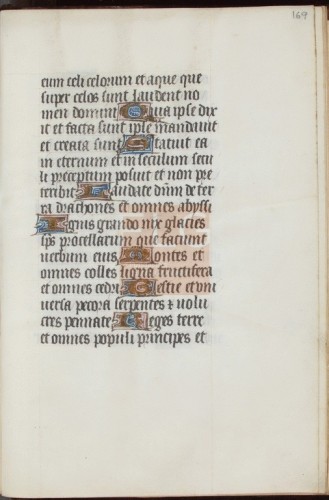 169
eum celi celorum et aque que
super celos sunt laudent no
men domini Quia ipse dix
it et facta sunt ipse mandauit
et creata sunt Statuit ea
in eternum et in seculum secu
li preceptum posuit et non pre
teribit Laudate dñm de ter
ra drachones et omnes abyssi
Ignis grando nix glacies
sp̄s procellarum que faciunt
uerbum eius Montes et
omnes colles ligna fructifera
et omnes cedri Bestie et uni
uersa pecora serpentes ⁊ uolu
cres pennate Reges terre
et omnes populi principes et